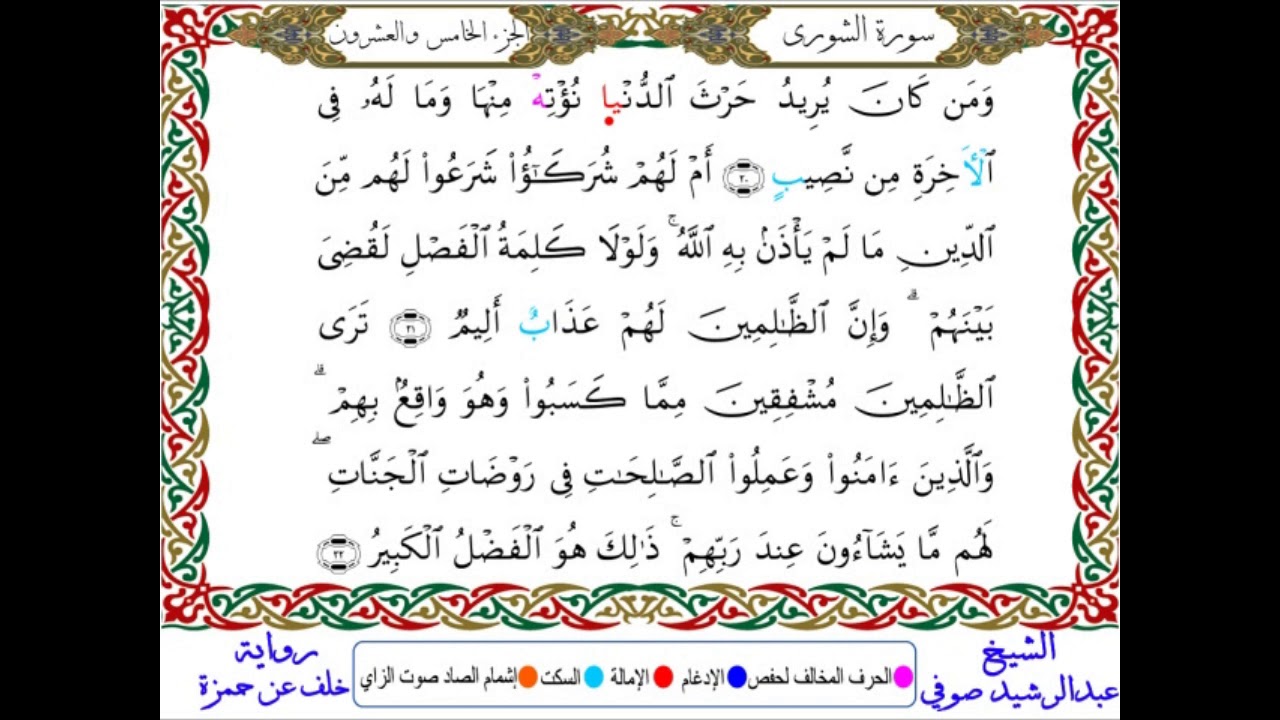 سورة الشورى
الجزء الخامس والعشرون
وَمَن كَانَ يُرِيدُ حَرْثَ ٱلدُّنْيا نُؤْتِهْ مِنْهَا وَمَا لَهُۥ فِى
ٱلْأَخِرَةِ مِن نَّصِيبٍ ٢٠ أَمْ لَهُمْ شُرَكَـٰٓؤُا۟ شَرَعُوا۟ لَهُم مِّنَ
ٱلدِّينِ مَا لَمْ يَأْذَنۢ بِهِ ٱللَّهُ ۚ وَلَوْلَا كَلِمَةُ ٱلْفَصْلِ لَقُضِىَ
بَيْنَهُمْ ۗ وَإِنَّ ٱلظَّـٰلِمِينَ لَهُمْ عَذَابٌ أَلِيمٌ ٢١ تَرَى
ٱلظَّـٰلِمِينَ مُشْفِقِينَ مِمَّا كَسَبُوا۟ وَهُوَ وَاقِعٌۢ بِهِمْ ۗ
وَٱلَّذِينَ ءَامَنُوا۟ وَعَمِلُوا۟ ٱلصَّـٰلِحَـٰتِ فِى رَوْضَاتِ ٱلْجَنَّاتِ ۖ
لَهُم مَّا يَشَآءُونَ عِندَ رَبِّهِمْ ۚ ذَٰلِكَ هُوَ ٱلْفَضْلُ ٱلْكَبِيرُ ٢٢
الشيخ
عبدالرشيد صوفي
الحرف المخالف لحفص الإدغام الإمالة السكت إشمام الصاد صوت الزاي
رواية
خلف عن حمزة